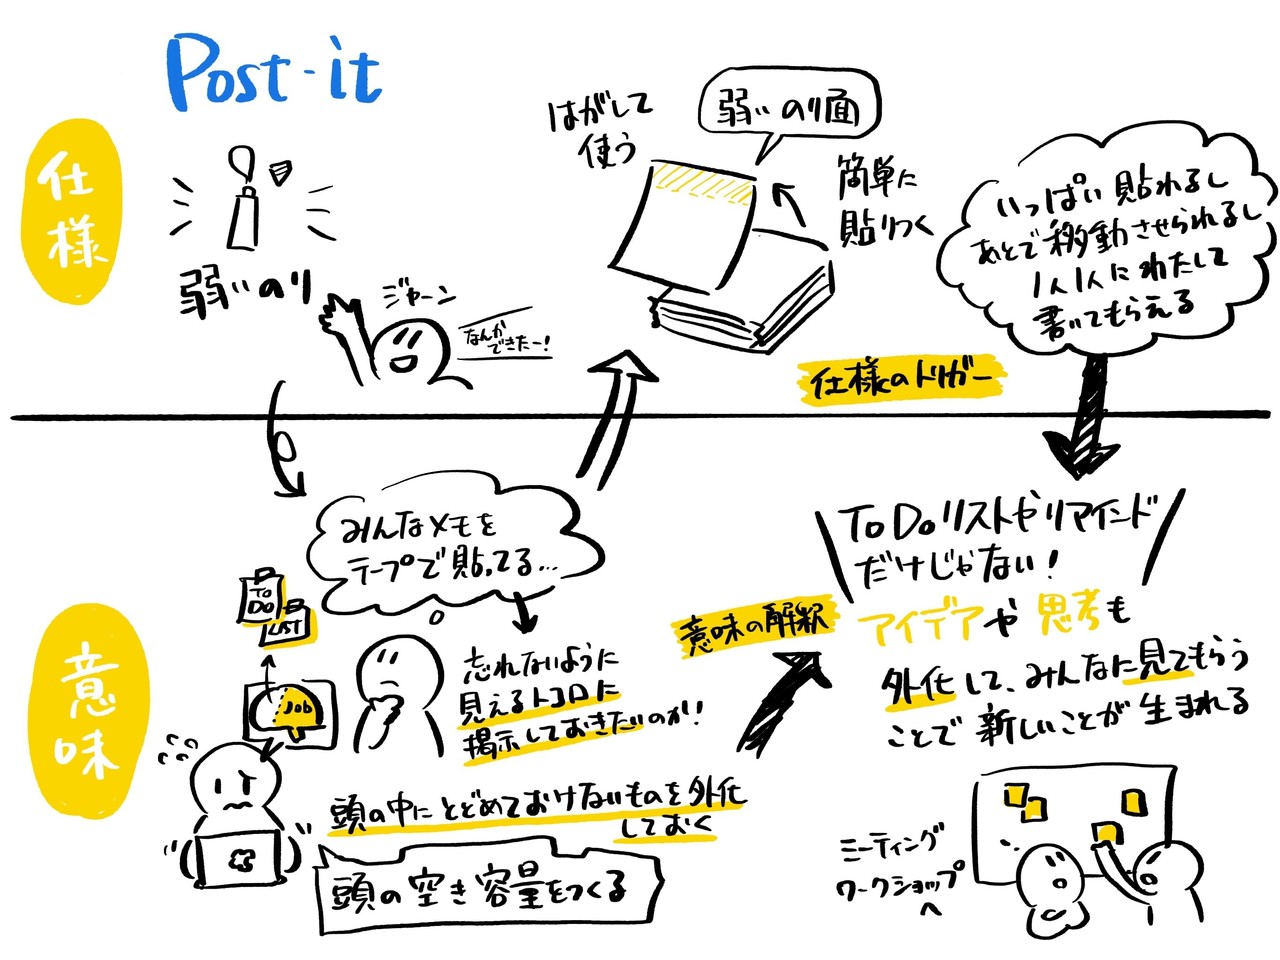 Post-it
仕様
弱いのり
ジャーン
なんか
できたー！
はがして
使う
弱いのり面
簡単に
貼りつく
いっぱい貼れるし
あとで移動させられるし
1人1人にわたして
書いてもらえる
仕様のトリガー
意味
みんなメモを
テープで貼ってる…
TO
DO
LIST
Job
忘れないように
見えるトコロに
掲示しておきたいのか！
頭の中にとどめておけないものを外化
しておく
頭の空き容量をつくる
意味の解釈
To Doリストやリマインド
だけじゃない！
アイデアや思考も
外化して、みんなに見てもらう
ことで新しいことが生まれる
ミーティング
ワークショップ
へ